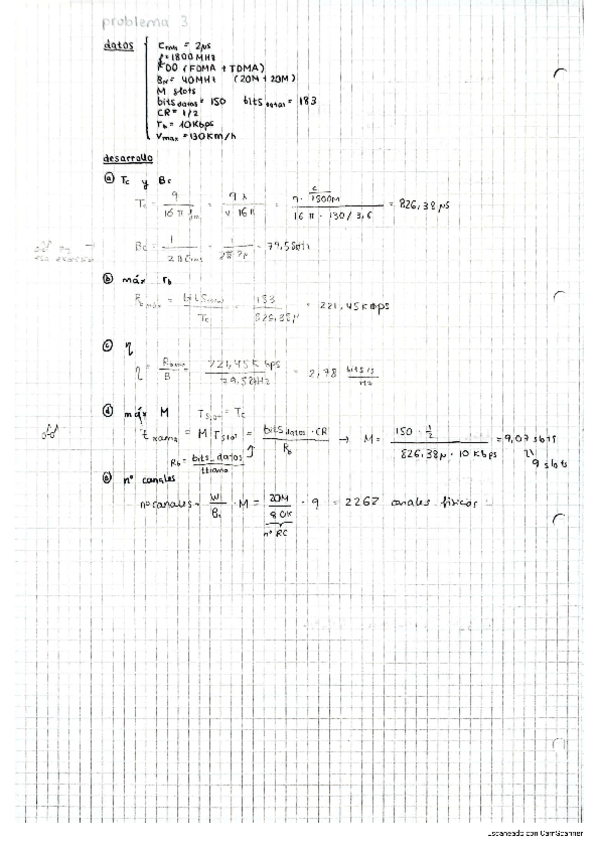 problema 3
datos
τrms = 2μs
f = 1800 MHz
FDD (FDMA + TDMA)
Bw = 40MHz (20M + 20M)
M slots
bits datos = 150 bits total = 183
CR = 1/2
rb = 10Kbps
Vmax = 130 Km/h
desarrollo
a) Tc y Bc
Tc = 9 / 16 π fm = 9 λ / v 16 π = 9 · c/1800M / 16 π · 130/3,6 = 826,38 μs
Bc = 1 / 2π τrms = 79,58kHz
b) máx rb
Rb máx = bits total / Tc = 183 / 826,38μ = 221,45 Kbps
c) η
η = Rbmax / B = 221,45K bps / 79,58kHz = 2,78 bits/s / Hz
d) máx M Tslot = Tc
ttrama = M Tslot = bits datos · CR / Rb → M = 150 · 1/2 / 826,38μ · 10 Kbps = 9,07 slots
Rb = bits_datos / ttrama
9 slots
e) nº canales
nº canales = W / Bc · M = 20M / 80K · 9 = 2262 canales físicos
nº RC
Escaneado con CamScanner